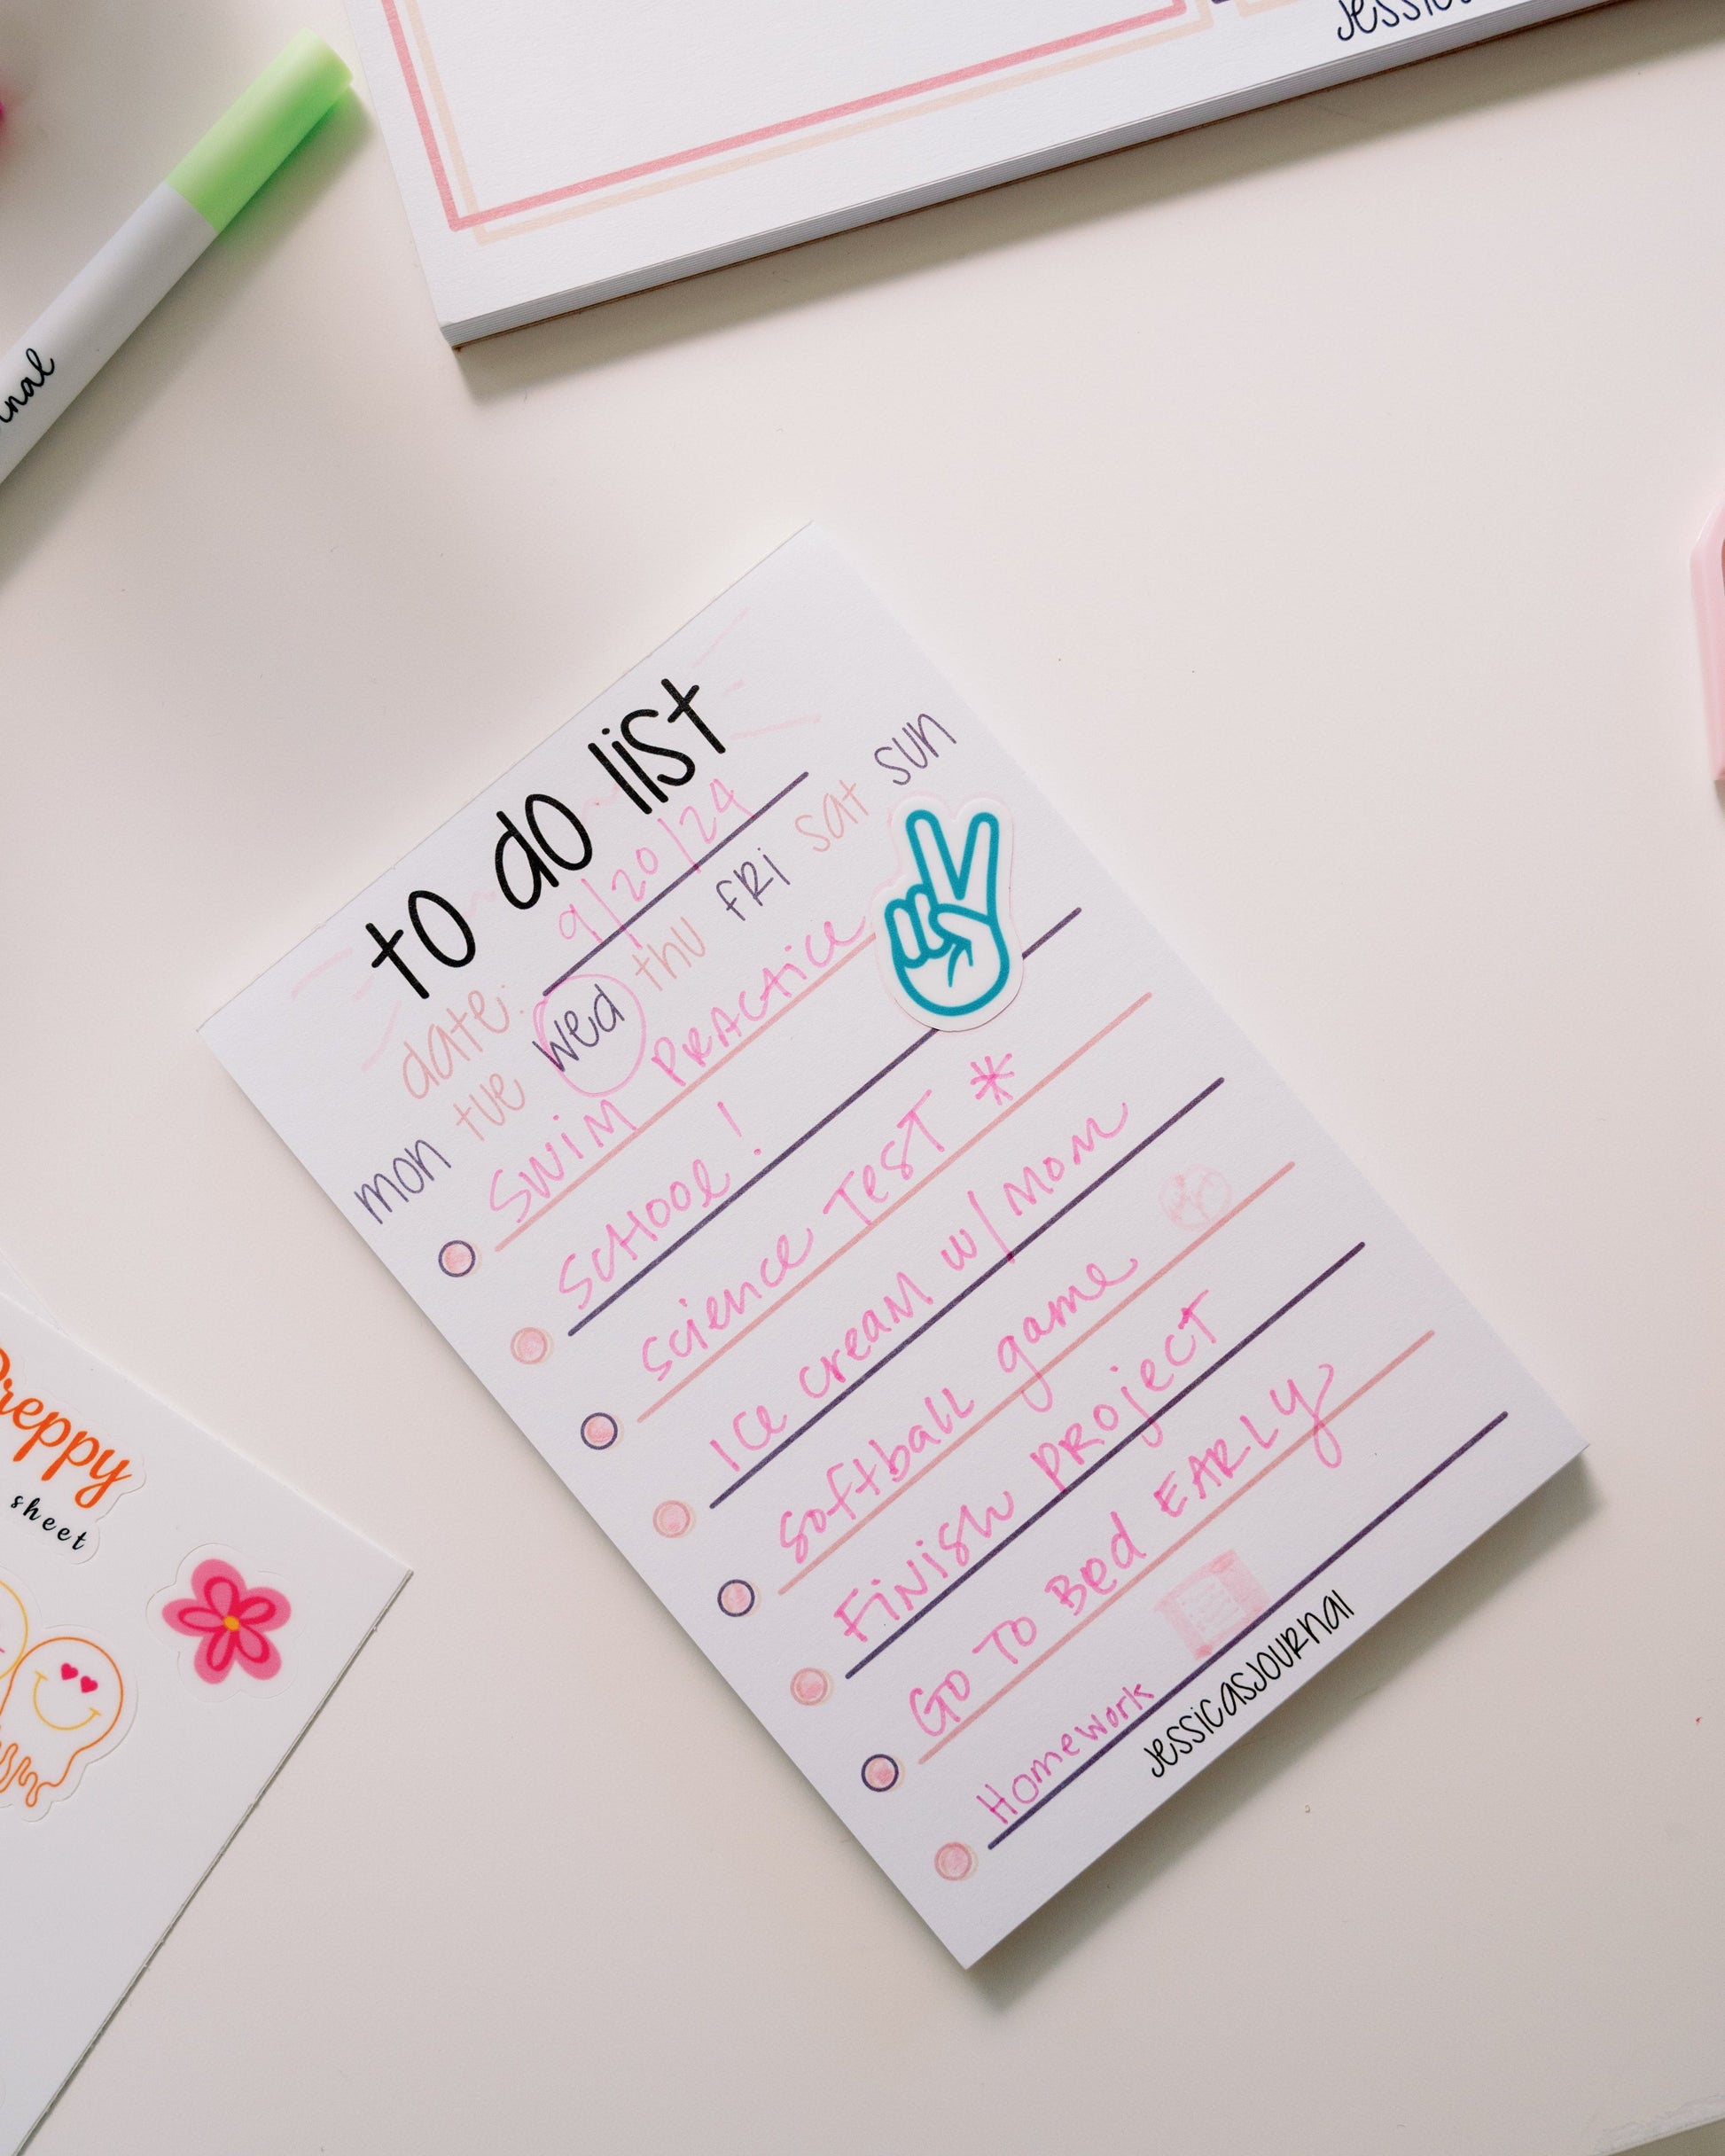 Jessic
nal
to do list
date: 9/20/24
mon tue wed thu fri sat sun
Swim Practice
School!
Science Test *
Ice cream w/ Mom
Softball game
Finish Project
Go To Bed Early
Homework
jessicasjournal
Preppy
sheet